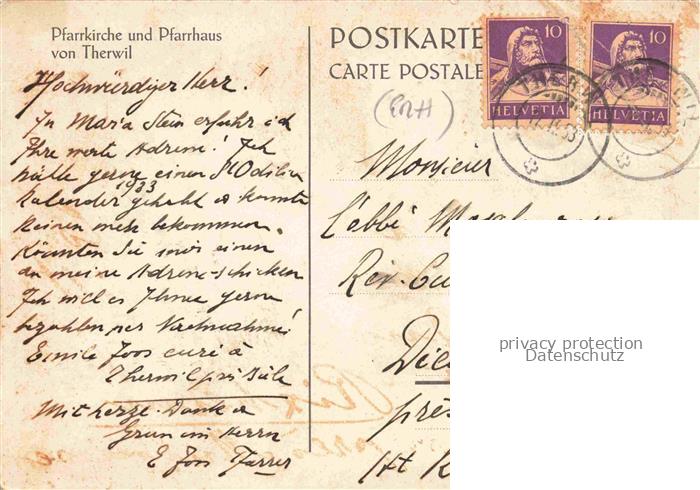 Pfarrkirche und Pfarrhaus
von Therwil
Hochwürdiger Herr!
In Maria Stein erfuhr ich
Ihre werte Adresse! Ich
hätte gerne einen St Odilien
Kalender 1933 gehabt u konnte
keinen mehr bekommen.
Könnten Sie mir einen
an meine Adresse schicken
Ich will es Ihnen gerne
bezahlen per Nachnahme!
Emile Joos curé à
Therwil près Bâle
Mit herzl. Dank u
Gruss im Herrn
E Joos Pfarrer
POSTKARTE
CARTE POSTALE
10
HELVETIA
10
HELVETIA
Monsieur
L'abbé
Rév. Cu
Die
près
Ht
privacy protection
Datenschutz